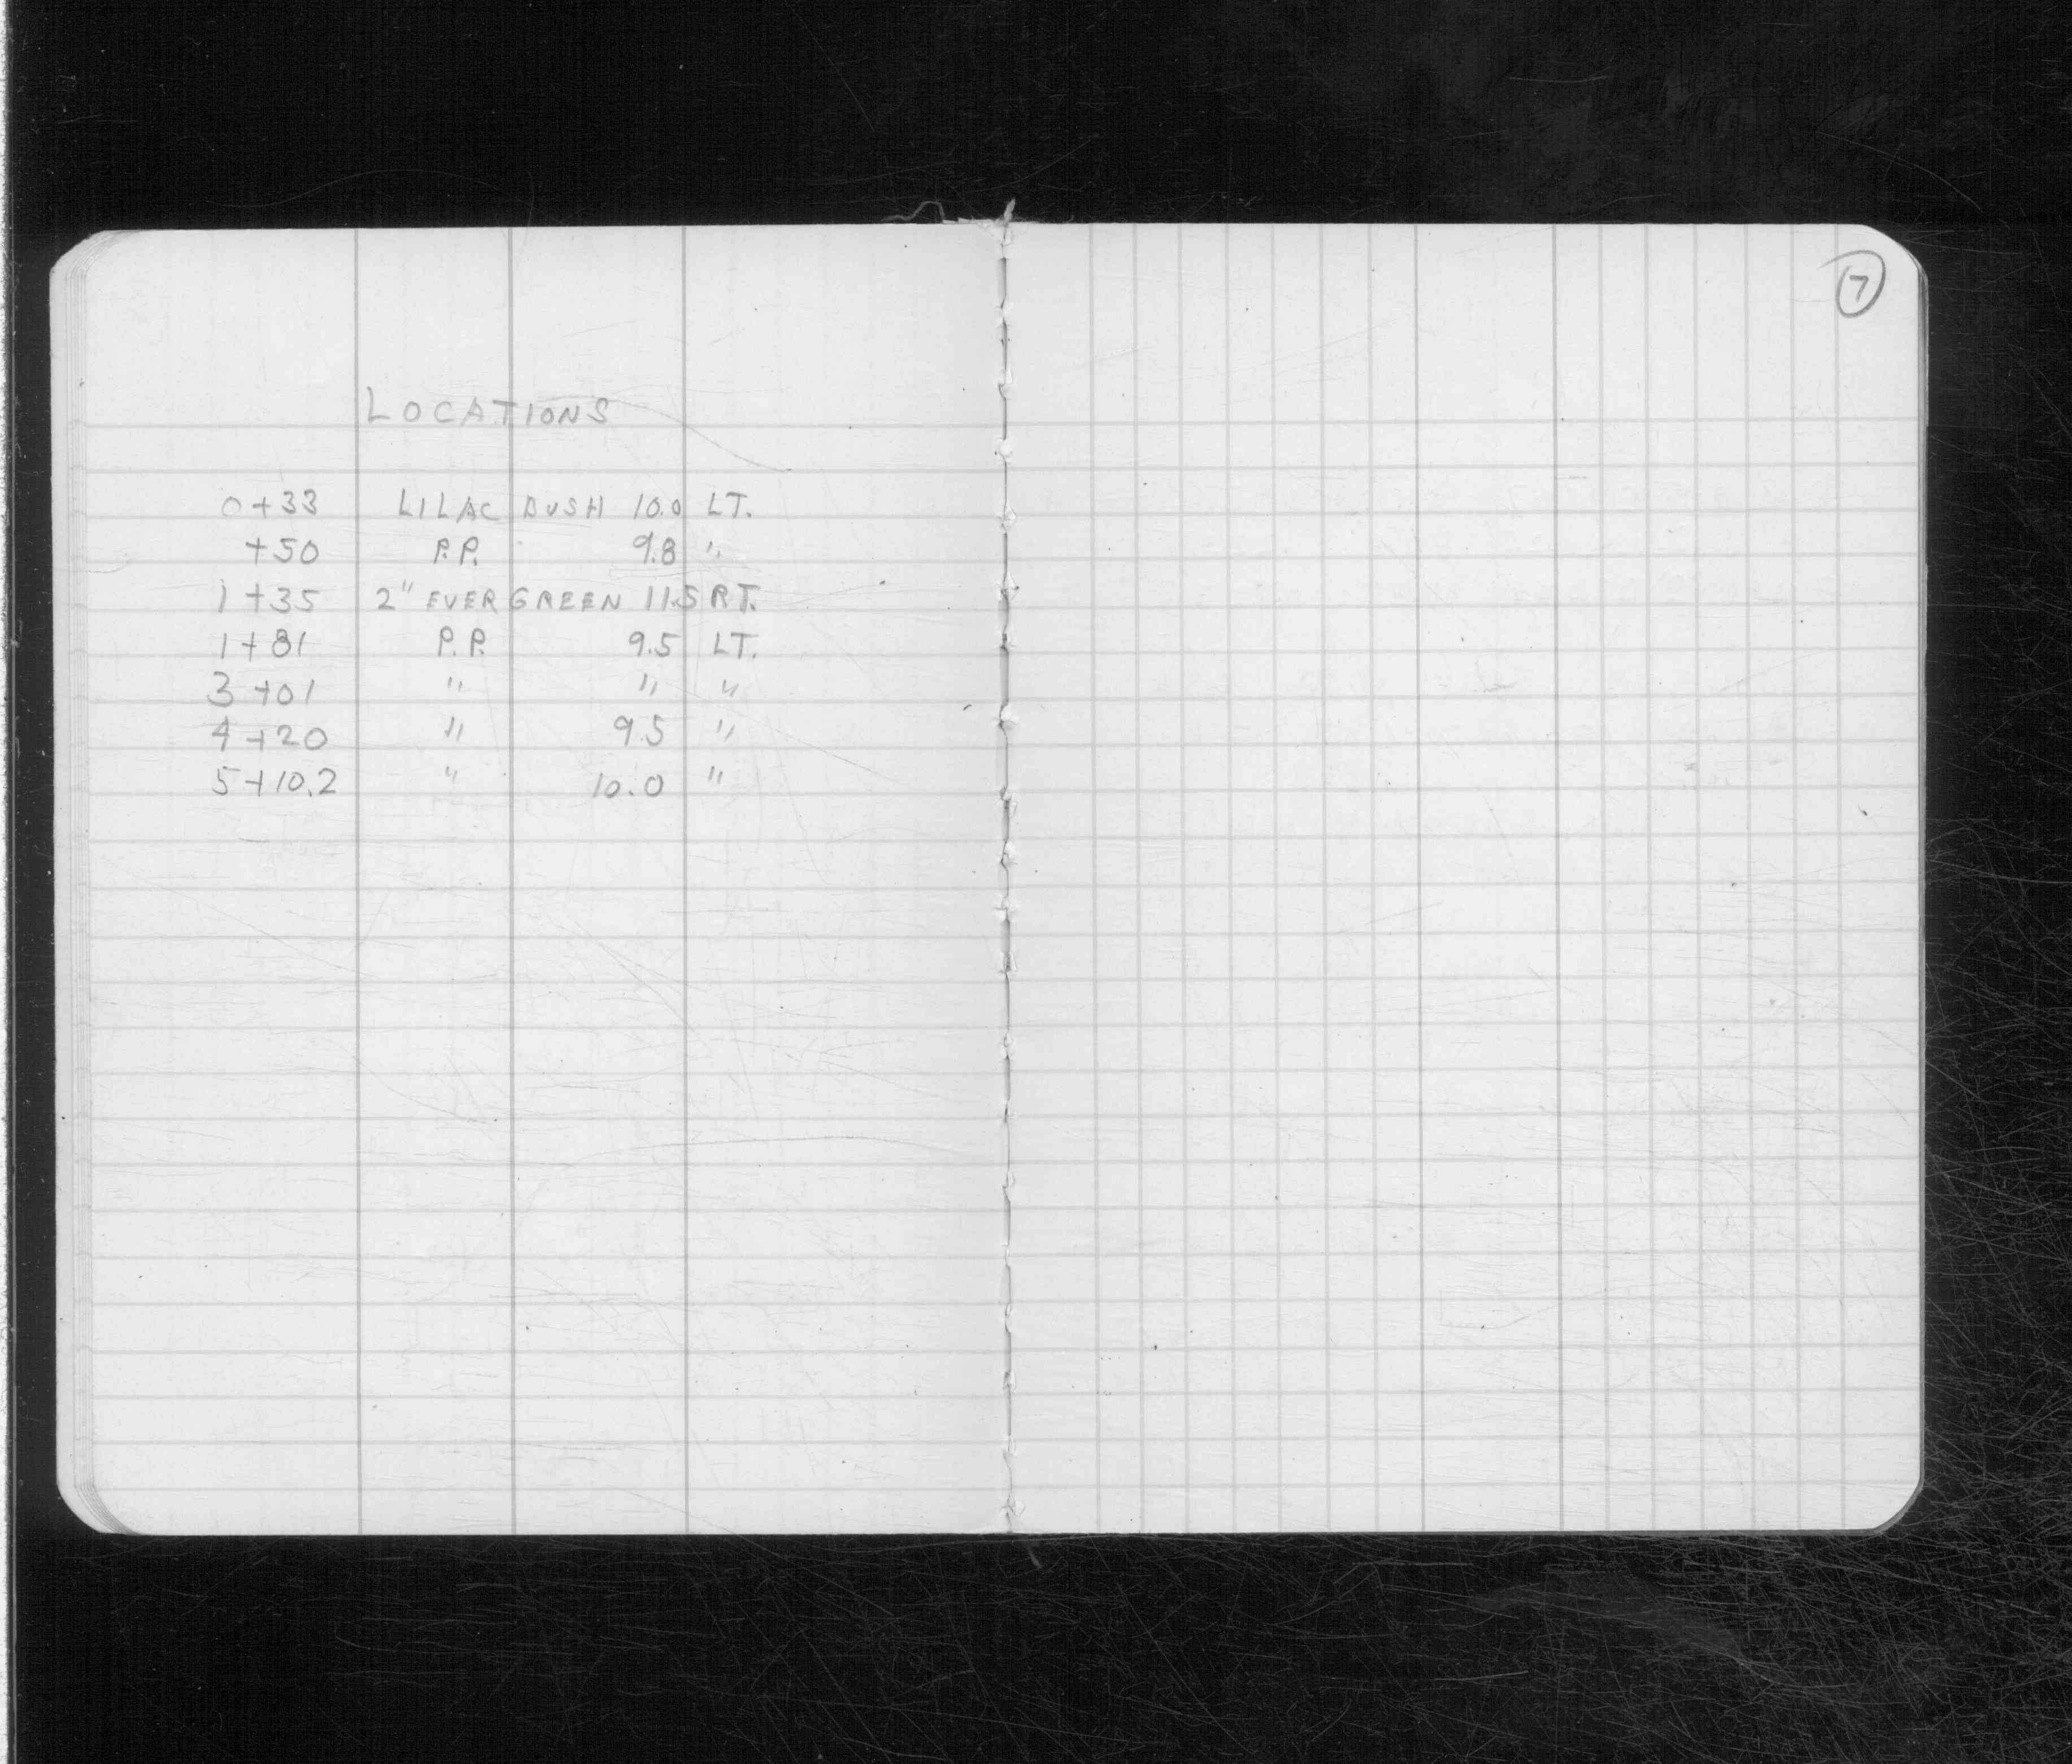 7
LOCATIONS
0+33 LILAC BUSH 10.0 LT.
+50 P.P. 9.8 "
1+35 2" EVERGREEN 11.5 RT.
1+81 P.P. 9.5 LT.
3+01 " " "
4+20 " 9.5 "
5+10.2 " 10.0 "